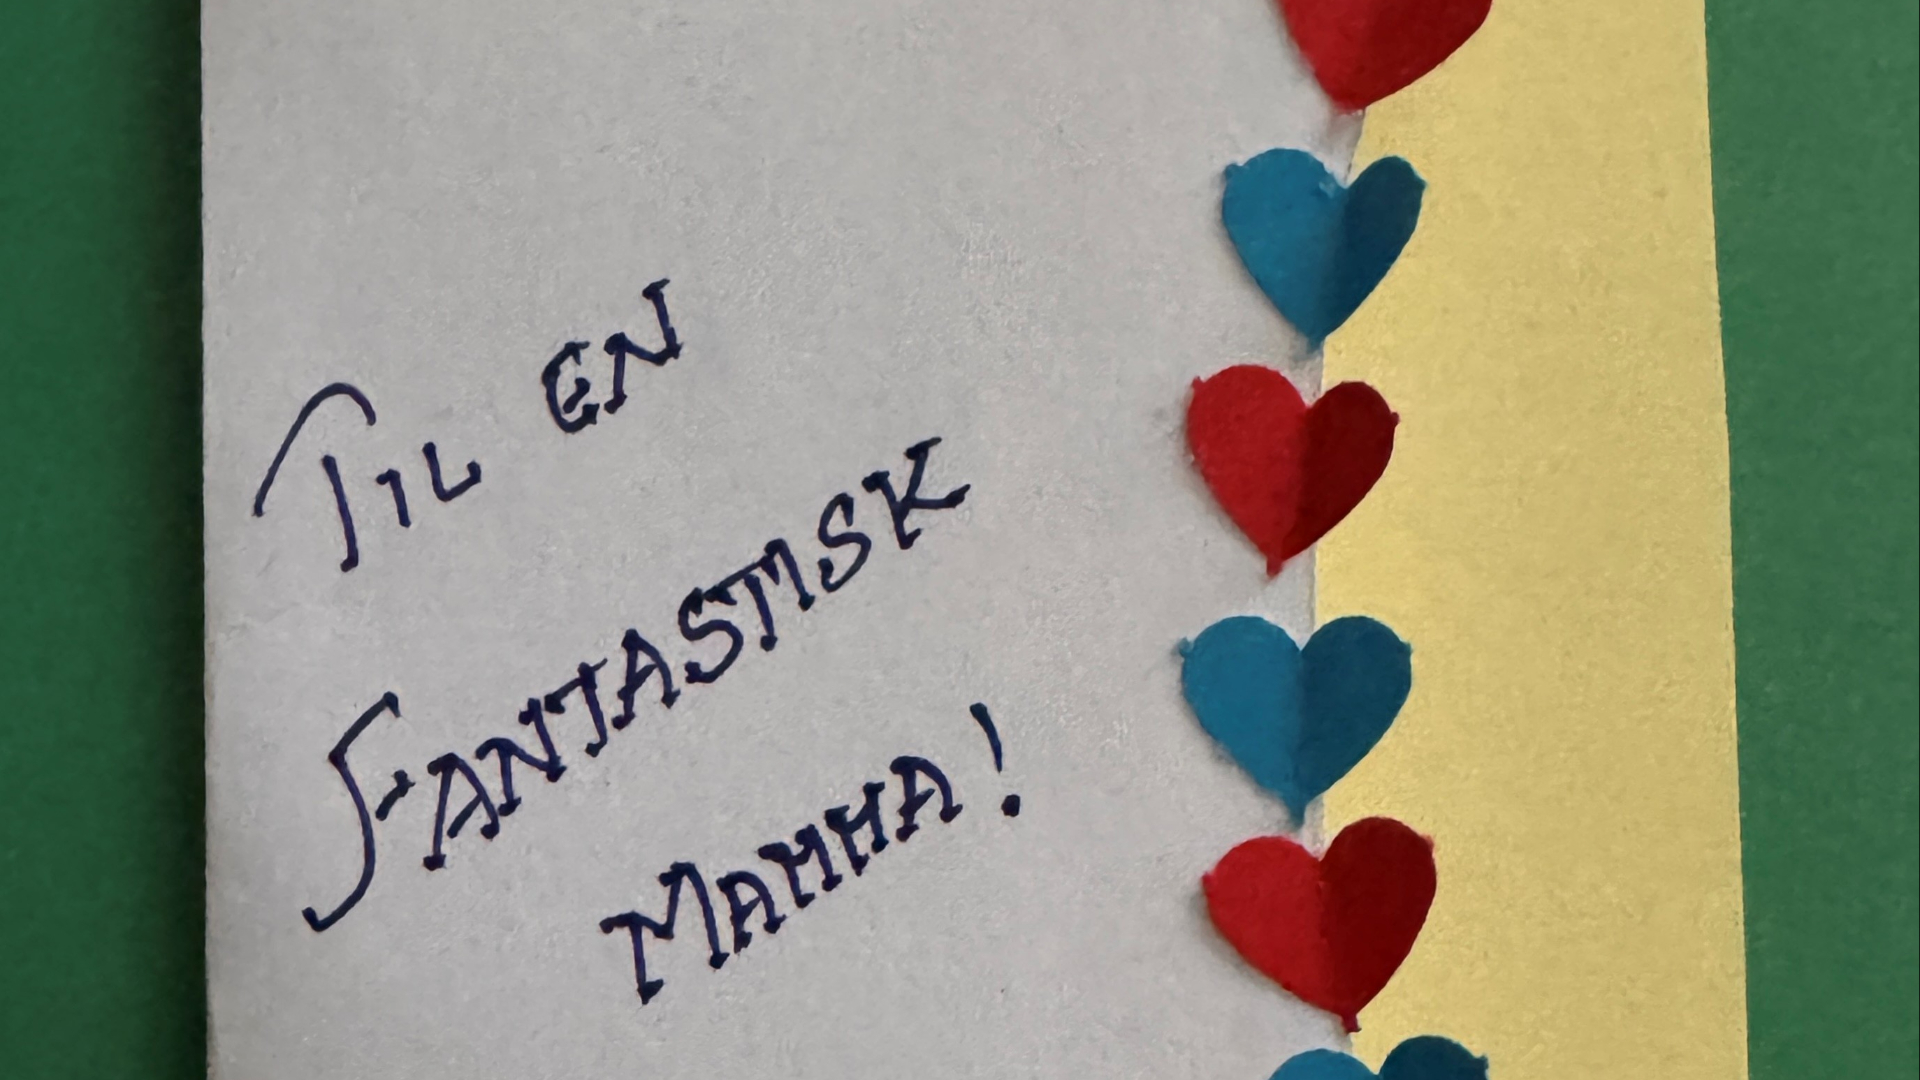 TIL EN
FANTASTISK
MAMMA!